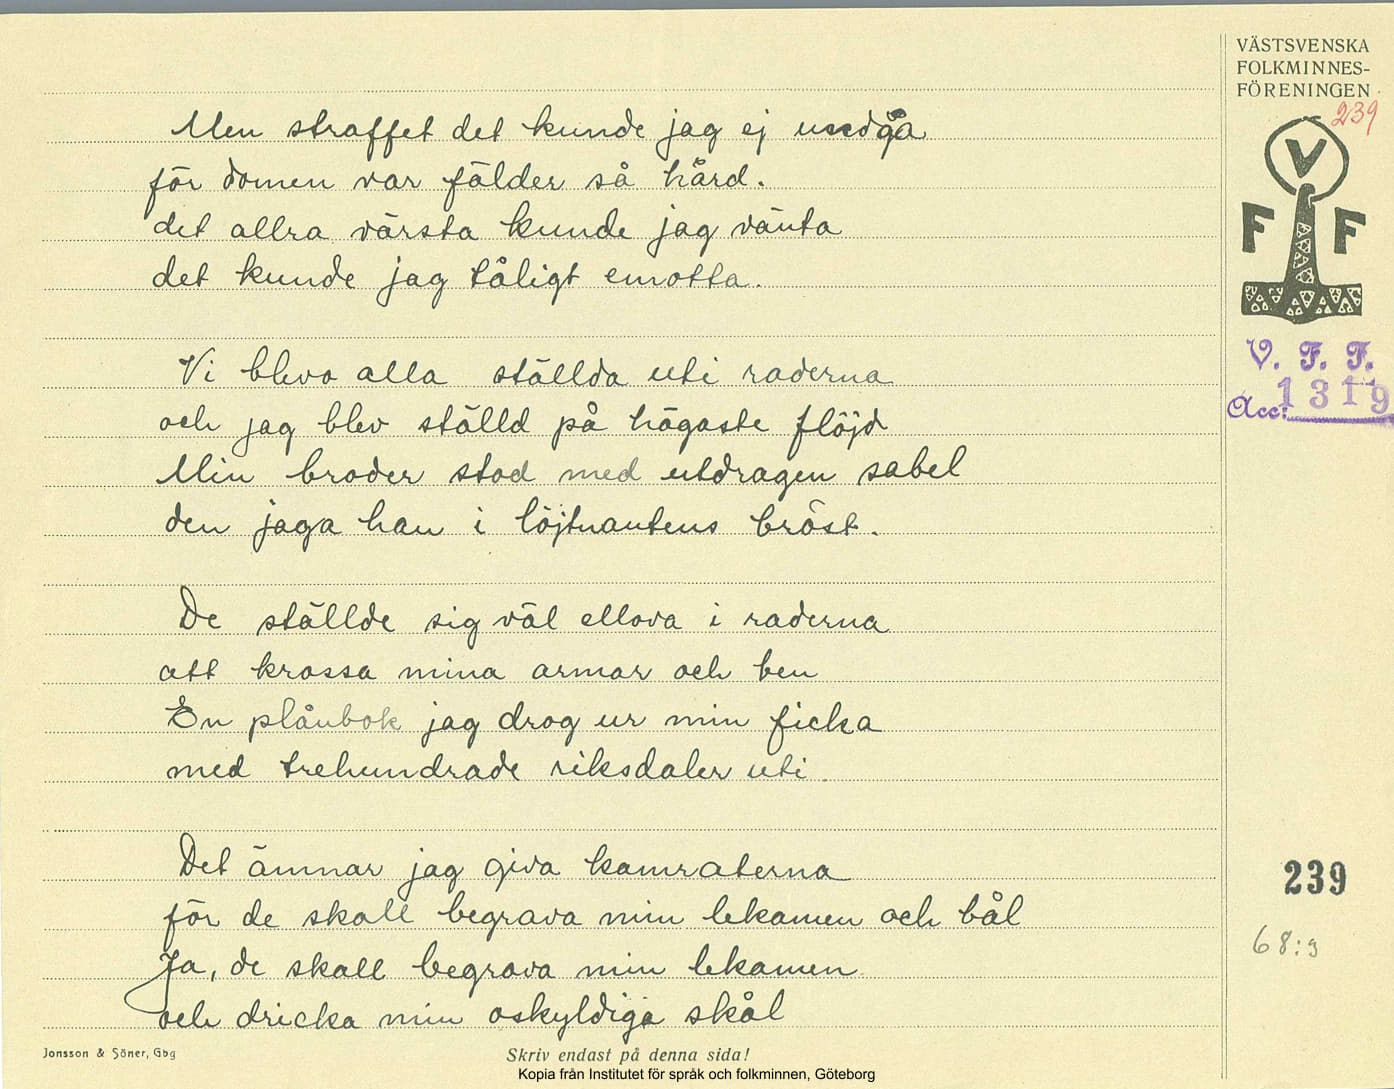 VÄSTSVENSKA
FOLKMINNES-
FÖRENINGEN
239
V
F F
V. F. F.
Acc: 1319
Men straffet det kunde jag ej undgå
för domen var fälder så hård.
det allra värsta kunde jag vänta
det kunde jag tåligt emotta.
Vi blevo alla ställda uti raderna
och jag blev ställd på högaste flöjd
Min broder stod med utdragen sabel
den jaga han i löjtnantens bröst.
De ställde sig väl ellova i raderna
att krossa mina armar och ben
En plånbok jag drog ur min ficka
med trehundrade riksdaler uti.
Det ämnar jag giva kamraterna
för de skall begrava min lekamen och bål
Ja, de skall begrava min lekamen
och dricka min oskyldiga skål
239
68:3
Jonsson & Söner, Gbg
Skriv endast på denna sida!
Kopia från Institutet för språk och folkminnen, Göteborg